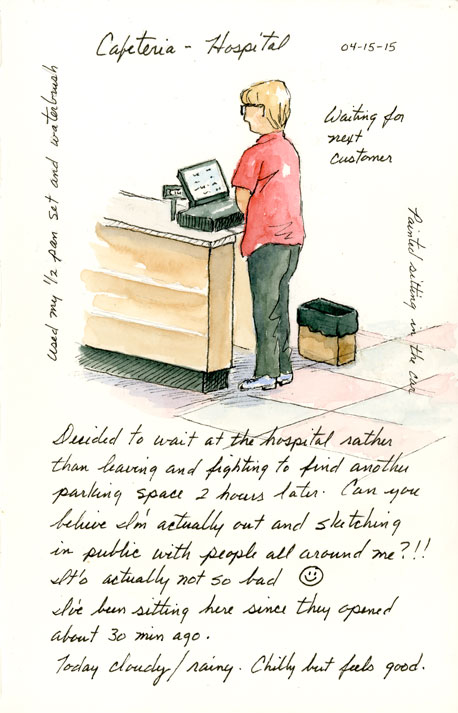 Cafeteria - Hospital
04-15-15
used my 1/2 pan set and waterbrush
Waiting for
next
customer
Painted sitting in the car
Decided to wait at the hospital rather
than leaving and fighting to find another
parking space 2 hours later. Can you
believe I'm actually out and sketching
in public with people all around me?!!
It's actually not so bad ☺
I've been sitting here since they opened
about 30 min ago.
Today cloudy/rainy. Chilly but feels good.